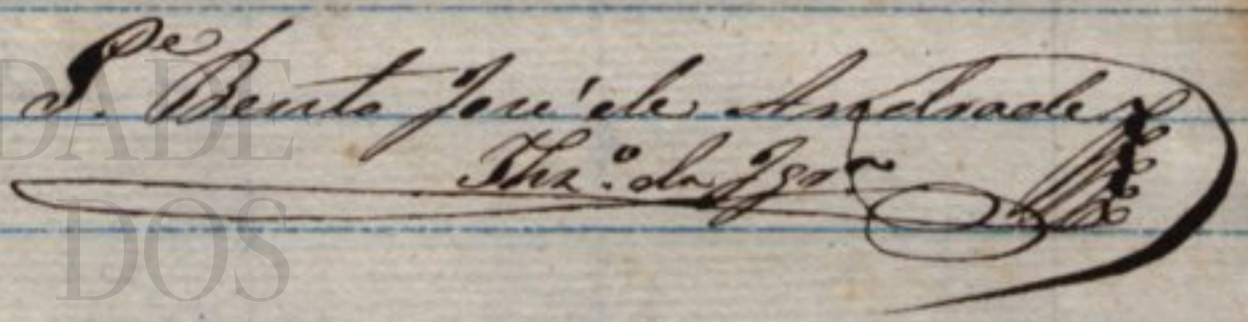 Pe. Bento José de Andrade
Thz.º da Igr.ª
DADE
DOS